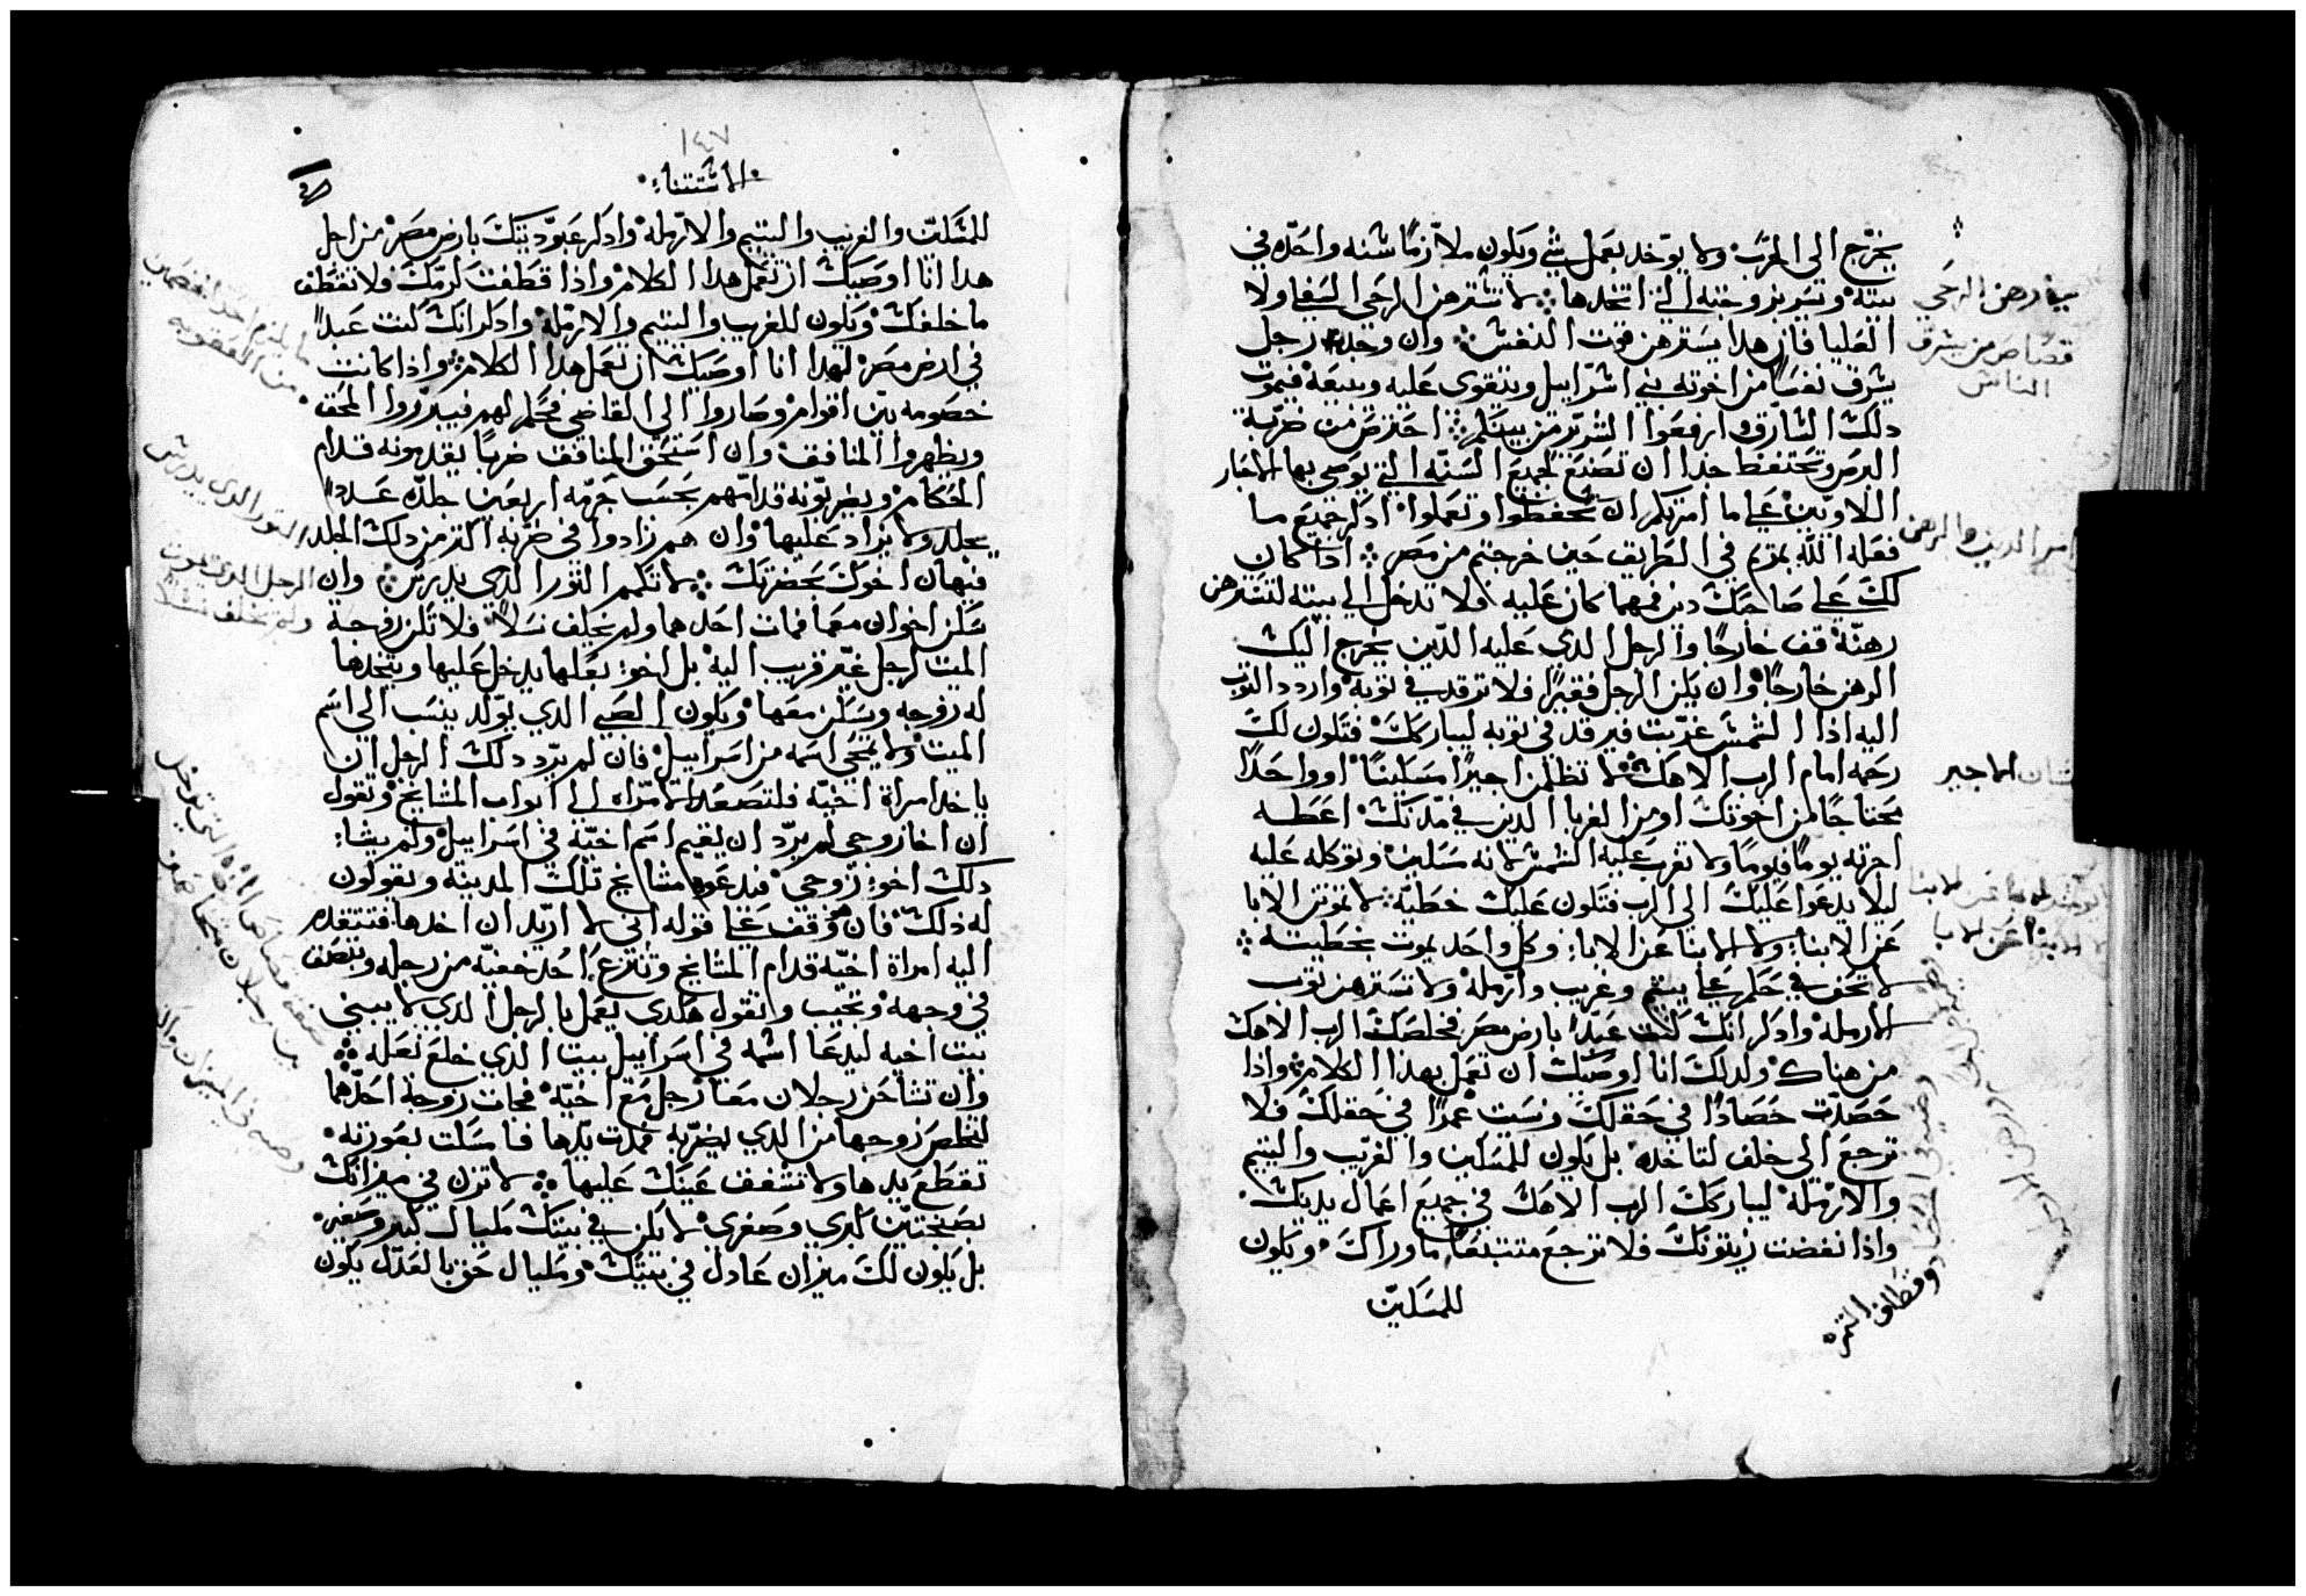 يخرج الى الحرب ولا يوخد بعمل شي ويكون ملازمًا شنه واحده في
بيته وتسر بزوجته التي اتخدها لا تشترهن الرحى السفلي ولا
العليا فان هدا يسترهن قوت النفش وان وجد رجل
يشرق نفسًا من اخوته بني اشراييل ويتقوى عليه ويبيعه فيموت
دلك الشارق وارفعوا الشرير من بينكم احترص من ضربة
البرص وتحتفظ جدا ان تصنع لجميع السنه التي يوصي بها الاحبار
اللاويين على ما امرتكم ان تحفظوا وتعملوا ادكر جميع ما
فعله الله بمريم في الطريق حين خرجتم من مصر ادا كان
لك على صاحبك دين فمهما كان عليه ولا تدخل الي بيته لتسترهن
رهنه قف خارجًا والرجل الدي عليه الدين يخرج اليك
الرهن خارجًا وان يكن الرجل فقيرًا فلا ترقد في ثوبه واردد الثوب
اليه اذا الشمش غربت فيرقد في ثوبه ليباركك فتكون لك
رحمه امام الرب الاهك لا تظلمن اجيرًا مسكينًا او واحدًا
محتاجًا من اخوتك او من الغربا الدين في مدنك اعطه
اجرته يومًا فيومًا ولا تغرب عليه الشمش لانه مسكين وتوكله عليه
ليلا يدعوا عليك الى الرب فتكون عليك خطيه لا تموتن الابا
عن الابنا ولا الابنا عن الابا وكل واحد يموت بخطيته
لا تحف في حكم على يتيم وغريب وارمله ولا تسترهن ثوب
الارمله وادكر انك كنت عبدًا بارض مصر فخلصك الرب الاهك
من هناك ولدلك انا اوصيك ان تعمل بهذا الكلام واذا
حصدت حصادًا في حقلك ونسيت غمرًا في حقلك فلا
ترجع الى خلف لتاخده بل يكون للمسكين والغريب واليتيم
والارمله ليباركك الرب الاهك في جميع اعمال يديك
واذا نفضت زيتونك فلا ترجع متتبعًا ما وراك ويكون
للمسكين
في رهن الرحي
قصاص من يشرق
الناش
امر الدين والرهن
شان الاجير
وقطاف الثمره
١٤٧
الاشتتناء
للمشكين والغريب واليتيم والارمله وادكر عبوديتك بارض مصر من اجل
هدا انا اوصيك ان تعمل هدا الكلام واذا قطفت كرمك فلا تقطف
ما خلفك ويكون للغريب واليتيم والارمله وادكر انك كنت عبدًا
في ارض مصر لهدا انا اوصيك ان تعمل هدا الكلام واذا كانت
خصومه بين اقوام وصاروا الى القاضي فحكم لهم فيبرروا المحق
ويظهروا المنافق وان استحق المنافق ضربًا يقدمونه قدام
الحكام ويضربونه قدامهم بحسب جرمه اربعين جلده عددًا
يجلد ولا يزاد عليها وان هم زادوا في ضربه اكتر من دلك الجلد
فيهان اخوك بحضرتك لا تكمم الثور الدي يدرش وان
سكن اخوان معا فمات احدهما ولم يخلف نسلًا فلا تكن زوجة
الميت لرجل غير قريب اليه بل اخو بعلها يدخل عليها ويتخدها
له زوجه ويسكن معها ويكون الصبي الدي يولد ينسب الى اسم
الميت ولا يمحى اسمه من اسراييل فان لم يرد دلك الرجل ان
ياخد امراة اخيه فلتصعد الامراه الى ابواب المشايخ وتقول
ان اخا زوجي لم يرد ان يقيم اسم اخيه في اسراييل ولم يشا
دلك اخو زوجي فيدعوه مشايخ تلك المدينه ويقولون
له ذلك فان هو وقف على قوله اني لا اريد ان اخدها فتتقدم
اليه امراة اخيه قدام المشايخ وتنزع احد خفيه من رجله وتبصق
في وجهه وتجيب وتقول هكدى يعمل بالرجل الدي لا يبني
بيت اخيه ليدعا اشمه في اسراييل بيت الذي خلع نعله
وان تشاجر رجلان معا رجل مع اخيه فجات زوجة احدهما
لتخلص زوجها من الدي يضربه فمدت يدها فامسكت بعورته
تقطع يدها ولا تشفق عينك عليها لا تزن في ميزانك
بصنجتين كبرى وصغرى لا يكن في بيتك مكيال كبير وصغير
بل يكون لك ميزان عادل في بيتك ومكيال حق بالعدل يكون
ما يلزم احد الخصمين
من العقوبه
الثور الدي يدرش
الرجل الدي يموت
ولم يخلف نشلا
وصيه في الميزان